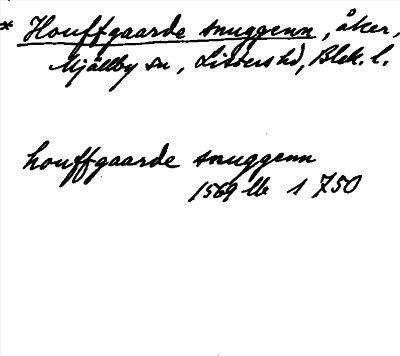 * Houffgaarde snuggenn, åker,
Mjällby sn, Listers hd, Blek. l.
houffgaarde snuggenn
1569 lb 1 750